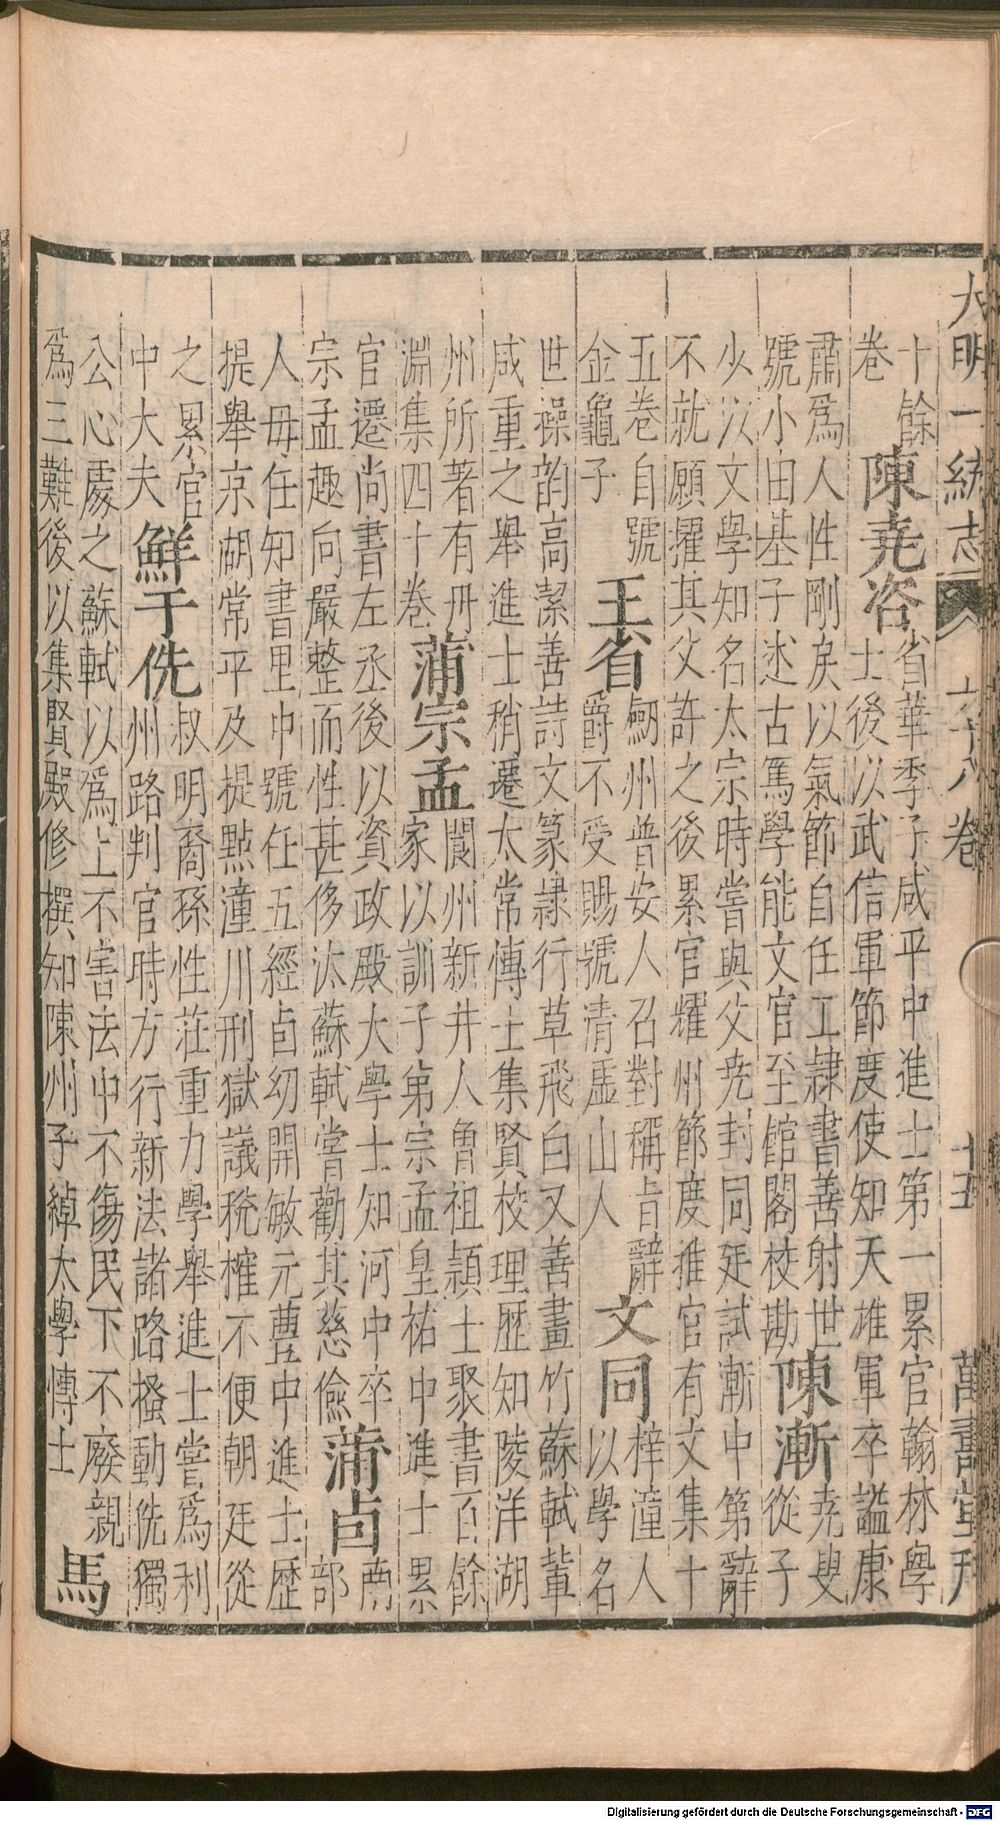 大明一統志 六十八卷 十五 萬壽堂刊
十餘
卷
陳堯咨
省華季子咸平中進士第一累官翰林學
士後以武信軍節度使知天雄軍卒謚康
肅爲人性剛戾以氣節自任工隷書善射世
號小由基子述古篤學能文官至館閣校勘
陳漸
堯叟
從子
少以文學知名太宗時嘗與父堯封同廷試漸中第辭
不就願擢其父許之後累官耀州節度推官有文集十
五卷自號
金龜子
王省
劒州普安人召對稱旨辭
爵不受賜號清虚山人
文同
梓潼人
以學名
世襙韵高潔善詩文篆隷行草飛白又善畫竹蘇軾輩
咸重之舉進士稍遷太常博士集賢校理歷知陵洋湖
州所著有丹
淵集四十卷
蒲宗孟
閬州新井人曾祖頴士聚書百餘
家以訓子弟宗孟皇祐中進士累
官遷尚書左丞後以資政殿大學士知河中卒
宗孟趣向嚴整而性甚侈汰蘇軾嘗勸其慈儉
蒲卣
南
部
人毋任知書里中號任五經卣幼開敏元豊中進士歷
提舉京湖常平及提點潼川刑獄議稅榷不便朝廷從
之累官
中大夫
鮮于侁
叔明裔孫性莊重力學舉進士嘗爲利
州路判官時方行新法諸路搔動侁獨
公心處之蘇軾以爲上不害法中不傷民下不廢親
爲三難後以集賢殿修撰知陳州子綽太學博士
馬
Digitalisierung gefördert durch die Deutsche Forschungsgemeinschaft - DFG